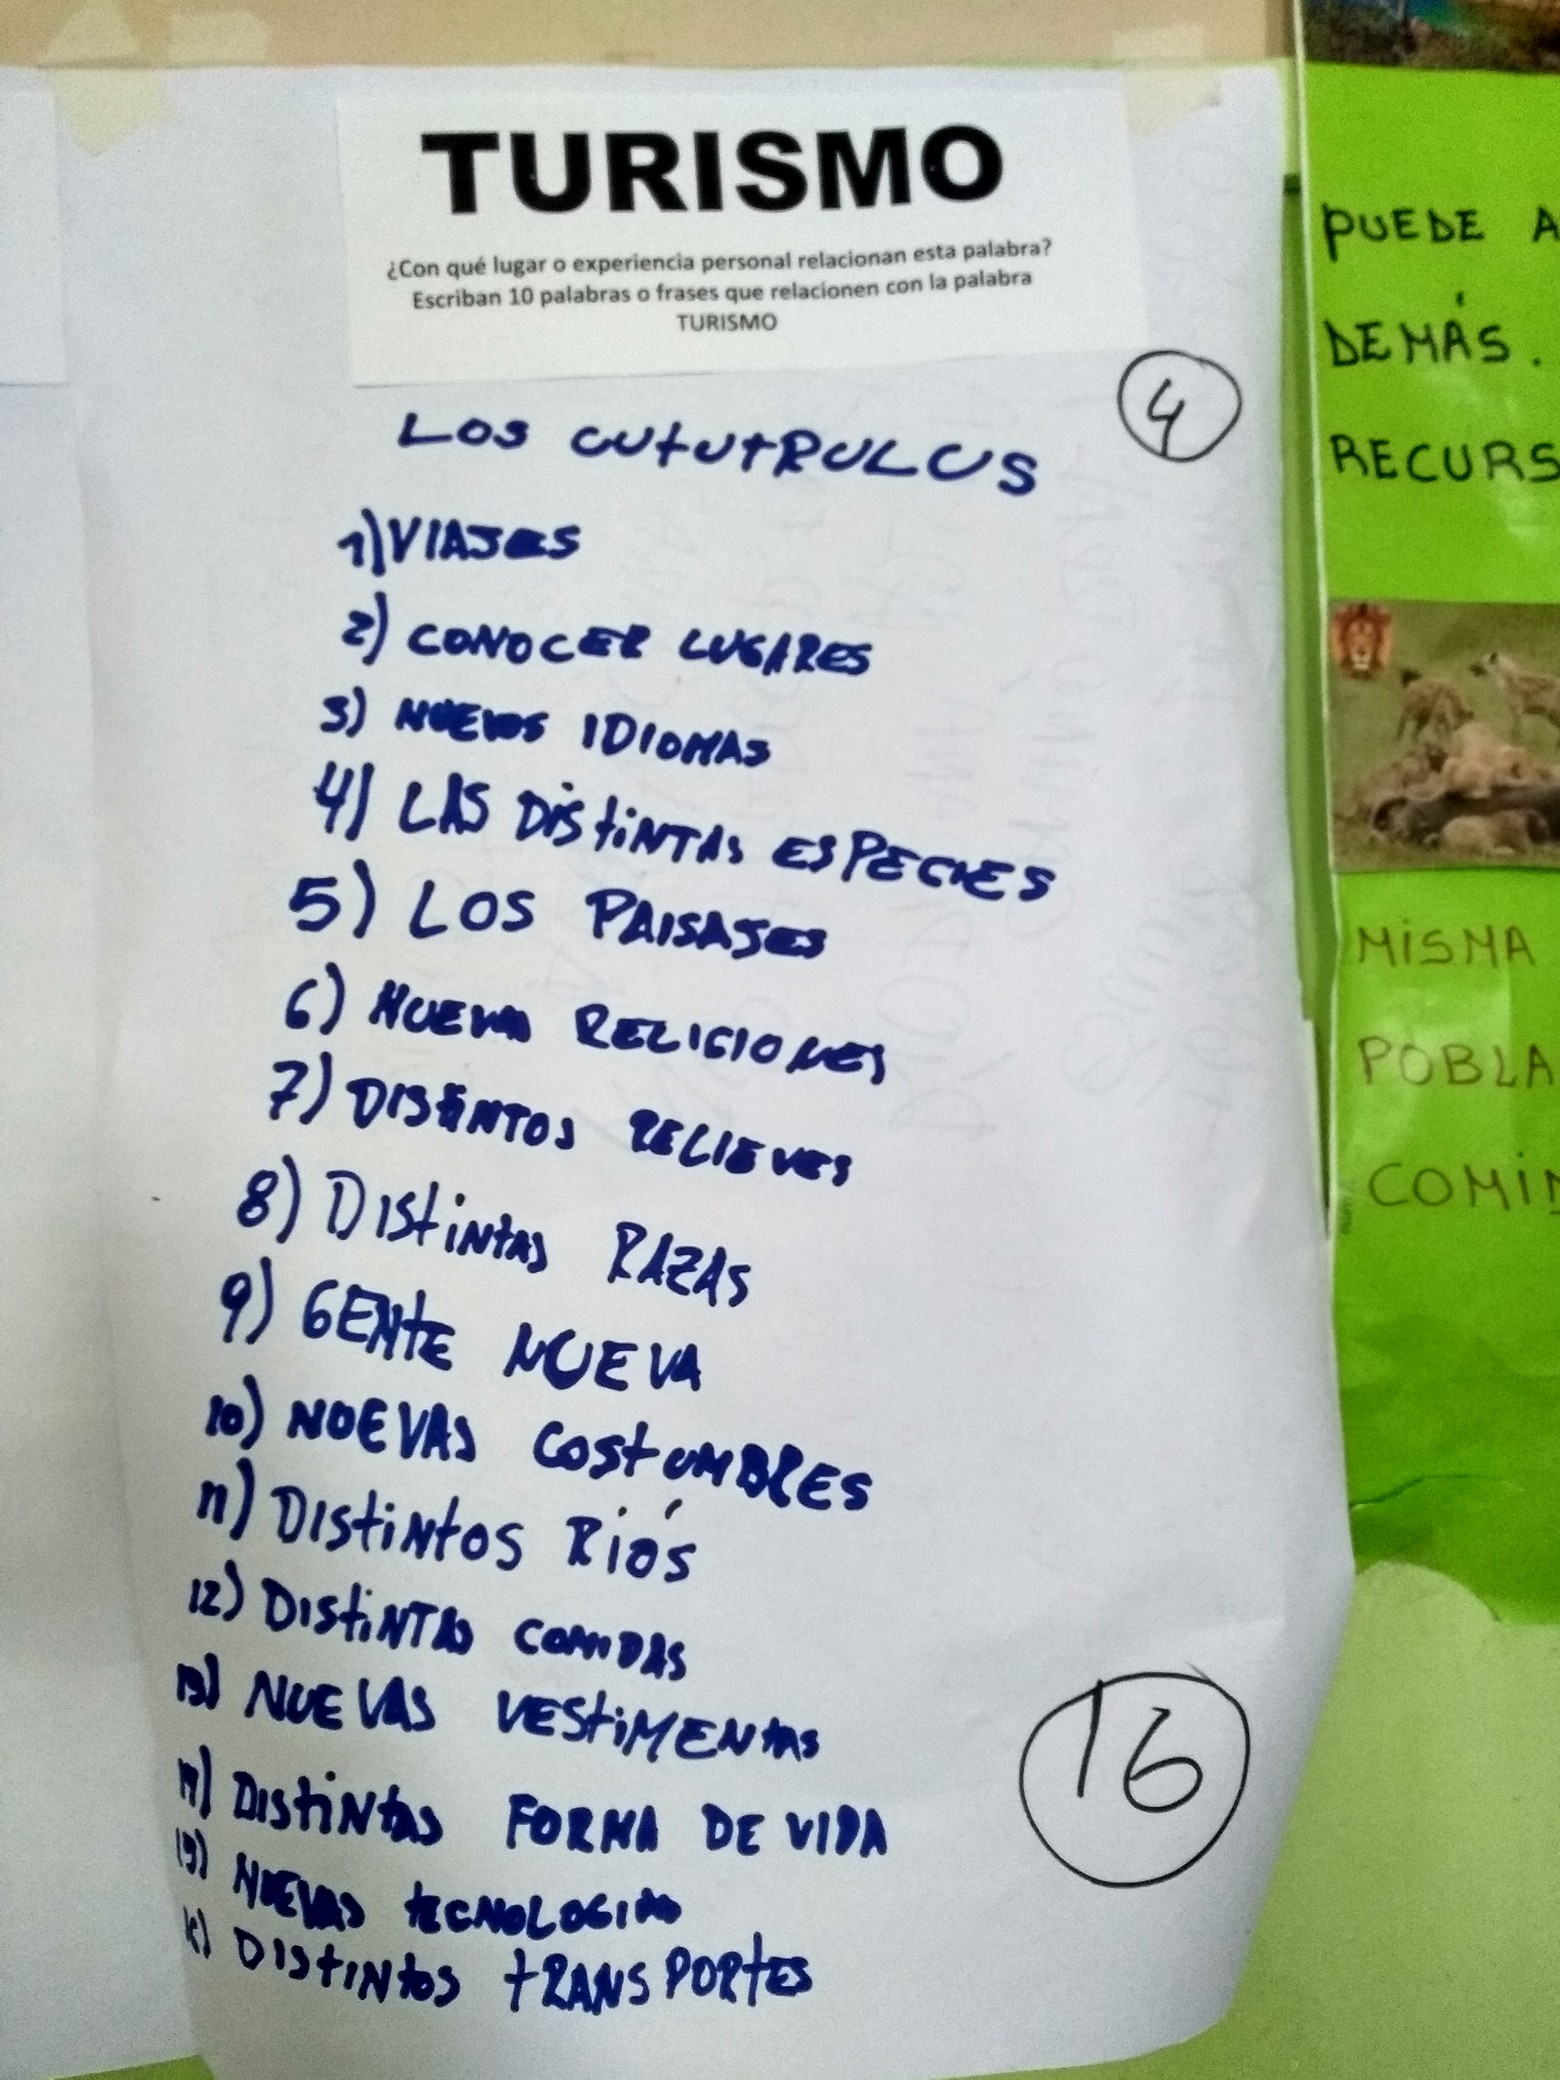 TURISMO
¿Con qué lugar o experiencia personal relacionan esta palabra?
Escriban 10 palabras o frases que relacionen con la palabra
TURISMO
4
LOS CUtUtRULOS
1) VIAJES
2) CONOCER LUGARES
3) NUEVOS IDIOMAS
4) LAS DIStiNTAS ESPECIES
5) LOS PAISAJES
6) NUEVAS RELIGIONES
7) DIStiNTOS RELIEVES
8) DIStiNtAS RAZAS
9) GENtE NUEVA
10) NUEVAS COStUMBRES
11) DIStiNtOS Riós
12) DIStiNTAS COMIDAS
13) NUEVAS VEStiMENtAS
14) DIStiNtAS FORMA DE VIDA
15) NUEVAS tECNOLOGIAS
16) DIStINtOS tRANSPORtES
16
PUEDE A
DEMÁS.
RECURS
MiSMA
POBLA
COMiN